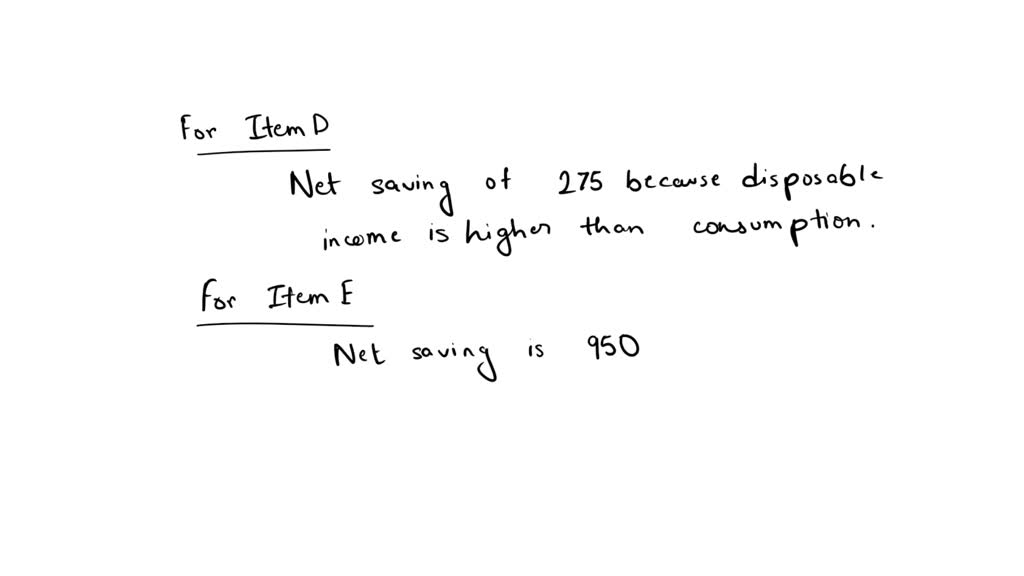 For Item D
Net saving of 275 because disposable
income is higher than consumption.
For Item E
Net saving is 950